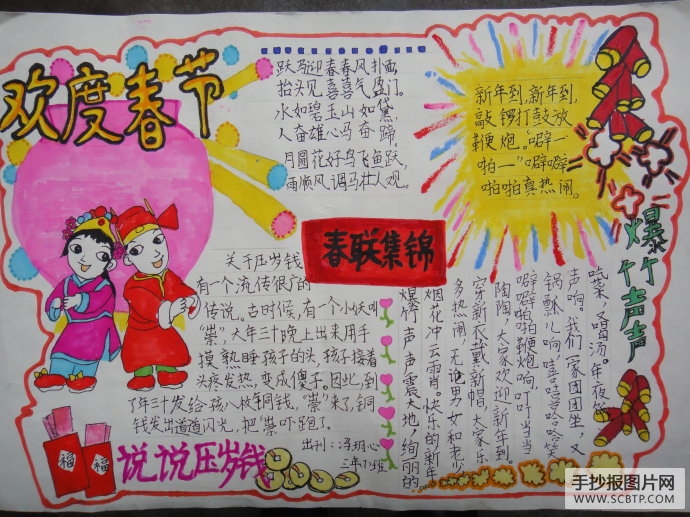 欢度春节
跃马迎春春风扑面
抬头见喜喜气盈门
水如碧玉山如黛
人奋雄心马奋蹄
月圆花好鸟飞鱼跃
雨顺风调马壮人欢
新年到,新年到,
敲锣打鼓放
鞭炮。“噼一
啪一”噼噼
啪啪真热闹。
春联集锦
关于压岁钱
有一个流传很广的
传说。古时候,有一个小妖叫
“祟”,大年三十晚上出来用手
摸熟睡孩子的头,孩子接着
头疼发热,变成傻子。因此,到
了年三十发给孩八枚铜钱,“祟”来了,铜
钱发出道道闪光,把“祟”吓跑了。
出刊:冯玥心
三年
班
说说压岁钱
福
福
爆竹声声
吃菜,又喝汤。年夜饭
声响。我们一家团团坐,又
锅瓢儿响。嘻嘻哈哈笑
噼噼啪啪鞭炮响,叮叮当当
陶陶,大家欢迎新年到。
穿新衣,戴新帽,大家乐
多热闹,无论男女和老少
烟花冲云霄。快乐的新年
爆竹声声震大地,绚丽的
手抄报图片网
WWW.SCBTP.COM